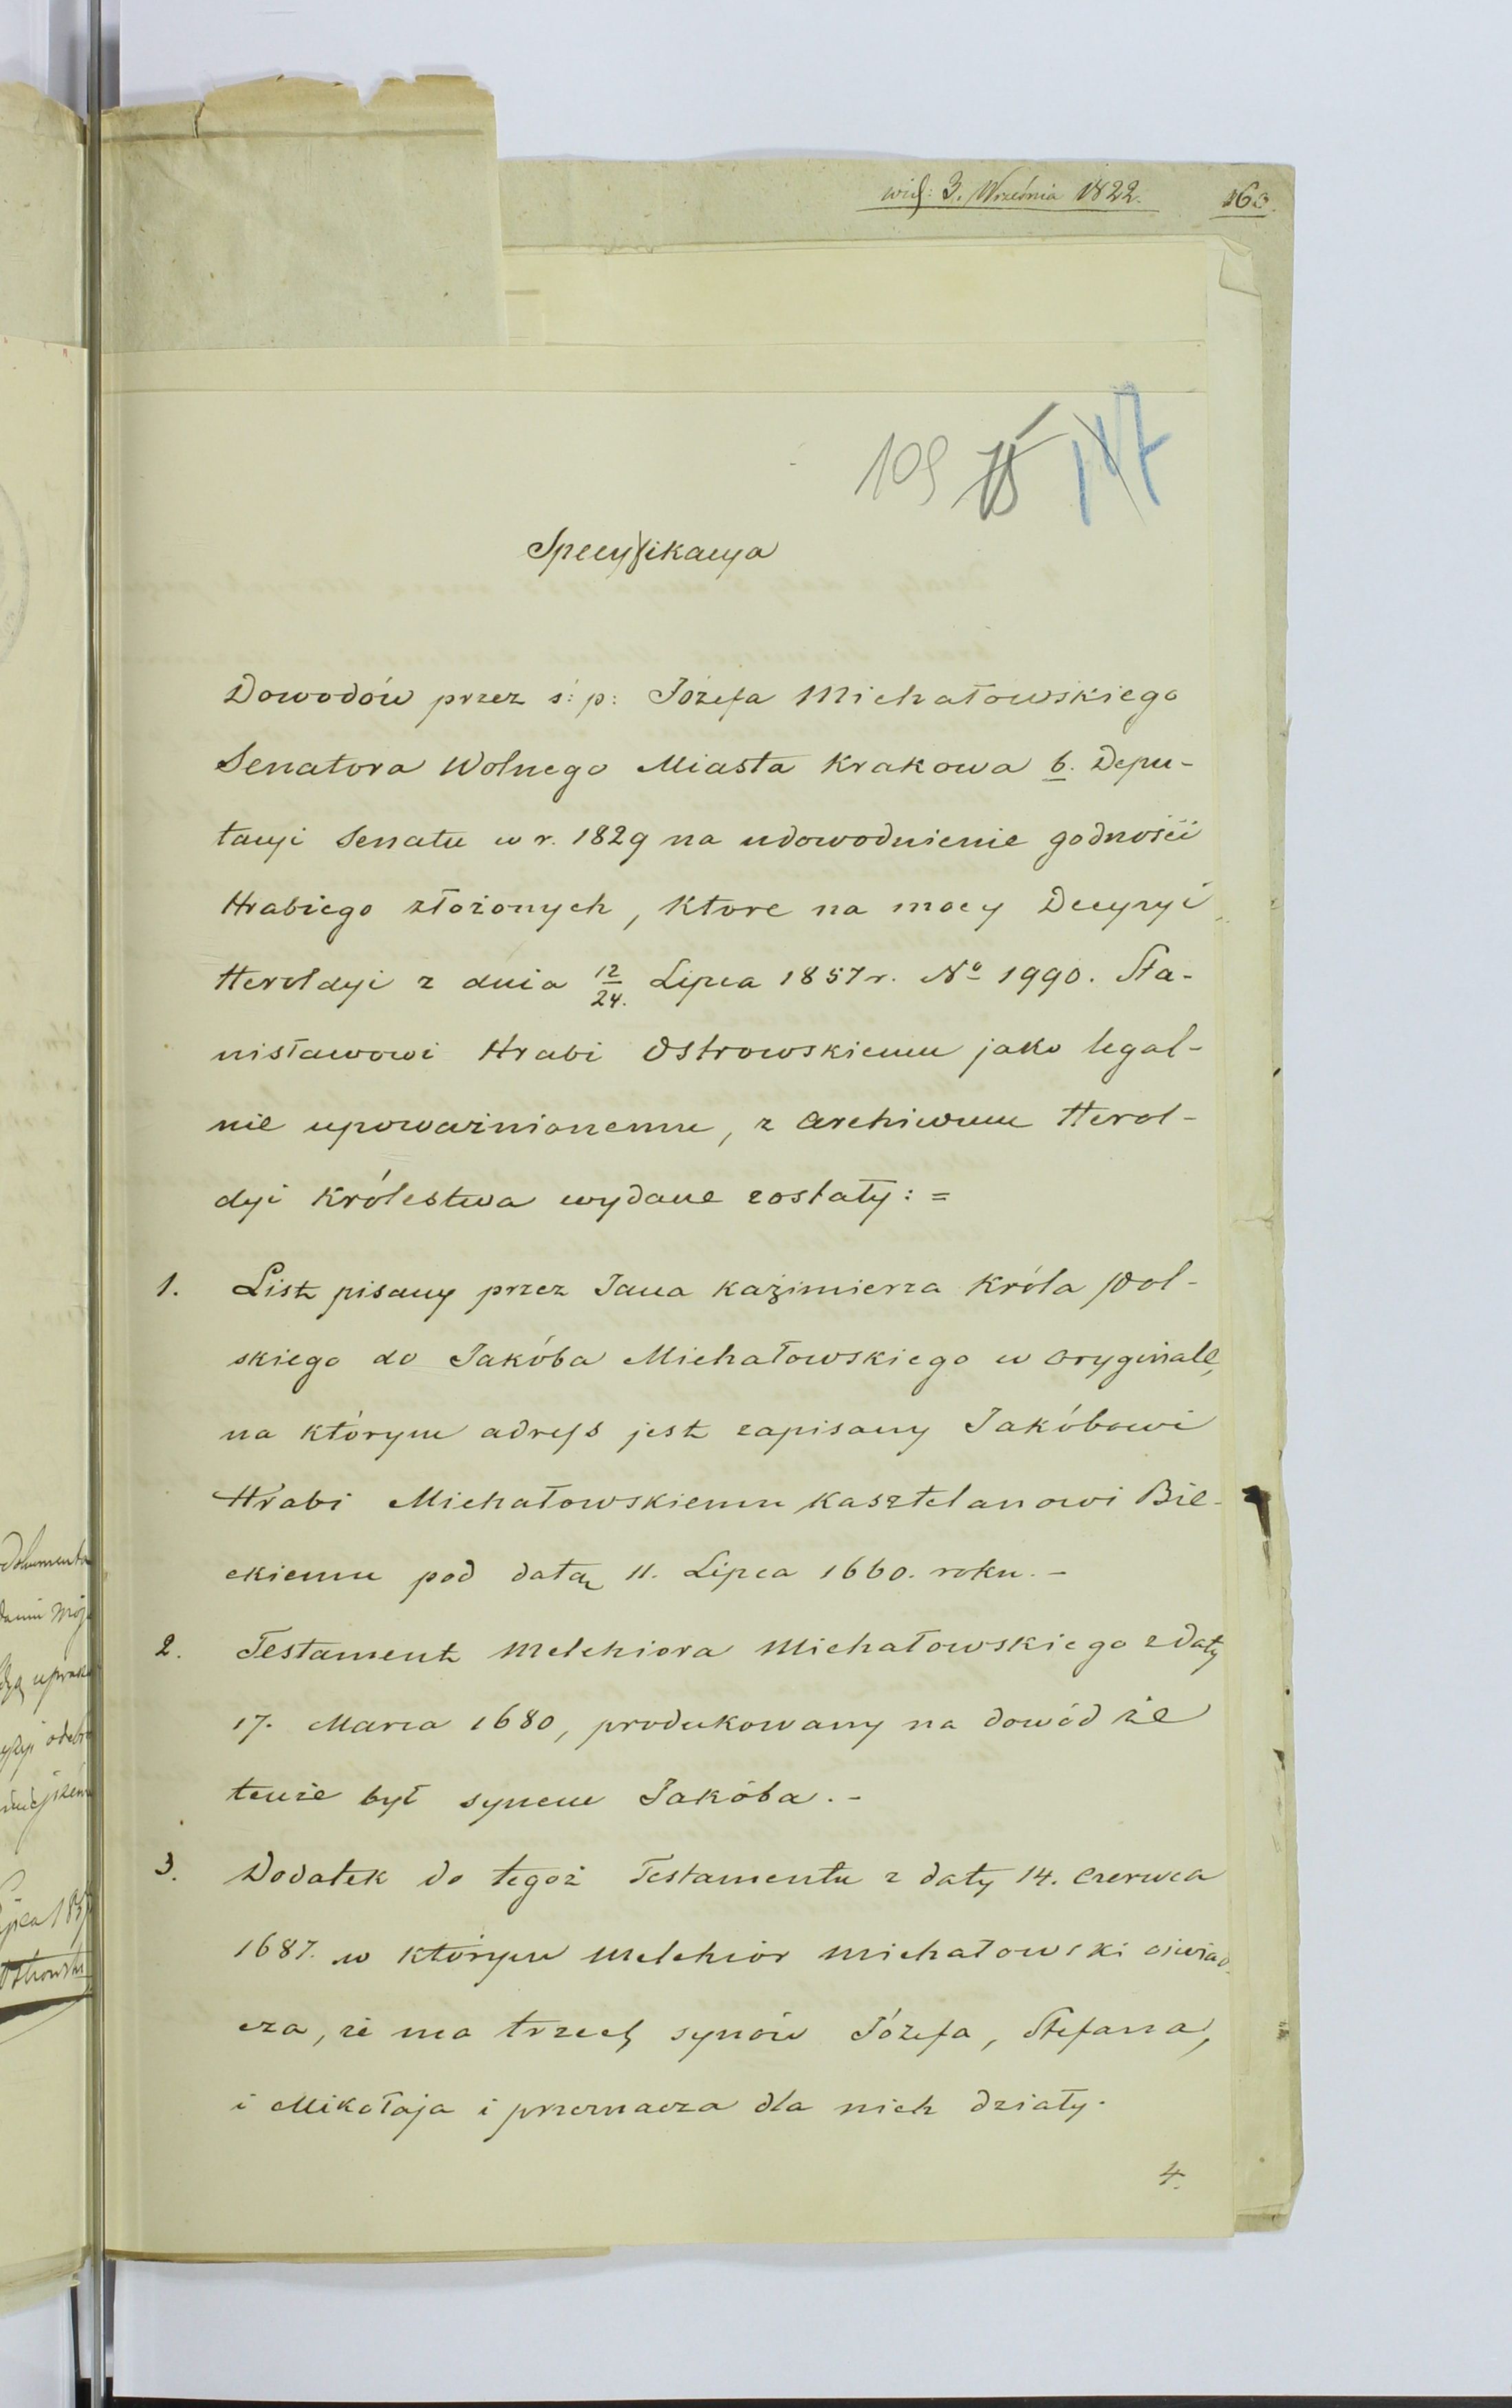 wid: 3. Września 1822. 163.
109 75 147
Specyfikacya
Dowodów przez ś: p: Józefa Michałowskiego
Senatora Wolnego Miasta Krakowa b. Depu-
tacyi Senatu w r. 1829 na udowodnienie godności
Hrabiego złożonych, które na mocy Decyzyi
Heroldyi z dnia 12/24. Lipca 1857 r. No 1990. Sta-
nisławowi Hrabi Ostrowskiemu jako legal-
nie upoważnionemu, z Archiwum Herol-
dyi Królestwa wydane zostały: =
1. List pisany przez Jana Kaźimierza Króla Pol-
skiego do Jakóba Michałowskiego w oryginale,
na którym adress jest zapisany Jakóbowi
Hrabi Michałowskiemu Kasztelanowi Bie-
ckiemu pod datą 11. Lipca 1660. roku. -
2. Testament Melchiora Michałowskiego z daty
17. Marca 1680, produkowany na dowód że
tenże był synem Jakóba. -
3. Dodatek do tegoż Testamentu z daty 14. Czerwca
1687. w którym Melchior Michałowski oświad-
cza, że ma trzech synów Józefa, Stefana,
i Mikołaja i przeznacza dla nich działy.
4.